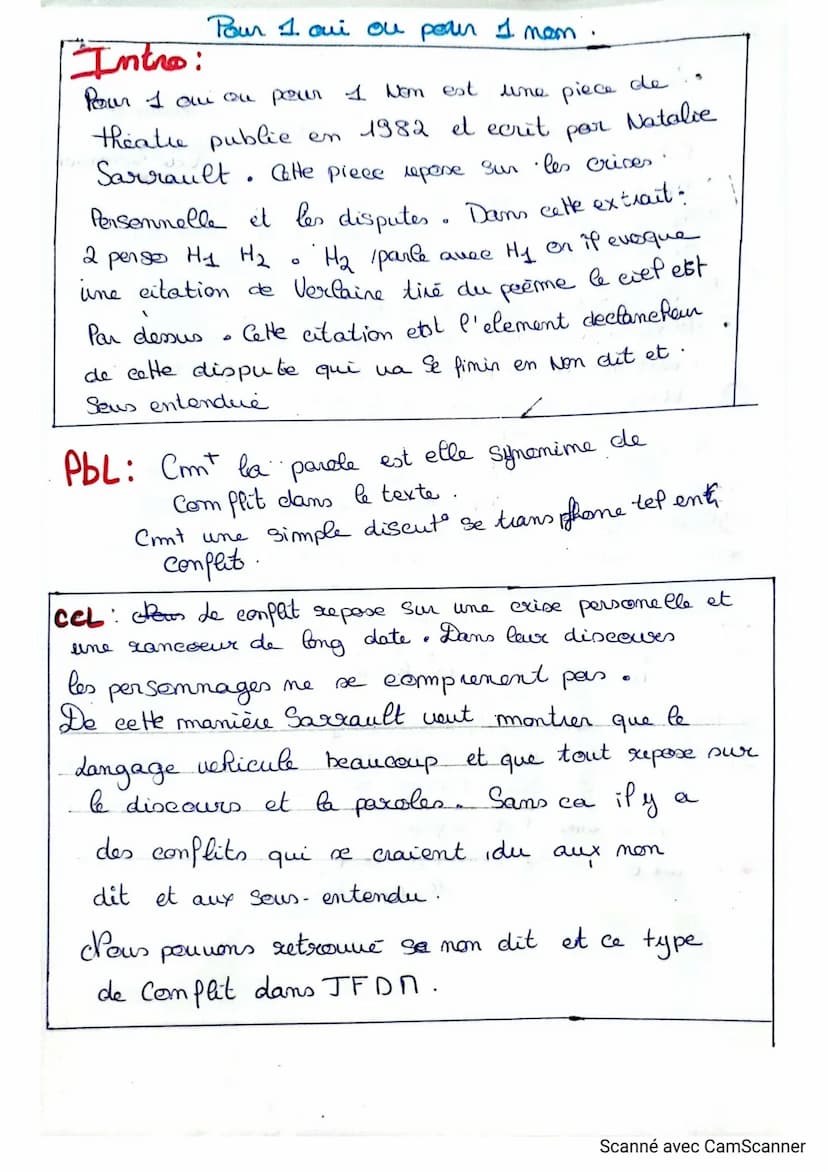 Pour 1 oui ou pour 1 non.
Intro :
Pour 1 oui ou pour 1 Non est une piece de
théatre publie en 1982 et ecrit par Natalie
Sarrault. Cette piece repose sur les crises
Personnelle et les disputes. Dans cette extrait :
2 perso H1 H2. H2 parle avec H1 on if evoque
une citation de Verlaine tiré du poème le ciel est
Par dessus. Cette citation est l'element declancheur
de cette dispute qui va se finir en Non dit et
Sous entendue
PbL : Cmt la parole est elle synonime de
Conflit dans le texte.
Cmt une simple discut° se transphome tel ent
conflit.
CCL : Le conflit repose sur une crise personelle et
une rancoeur de long date. Dans leur discours
les personnages ne se comprenent pas.
De cette manière Sarrault veut montrer que le
langage vehicule beaucoup et que tout repose sur
le discours et la paroles. Sans ca il y a
des conflits qui se craient du aux non
dit et aux sous-entendu.
Nous pouvons retrouvé se non dit et ce type
de Conflit dans JFDM.
Scanné avec CamScanner